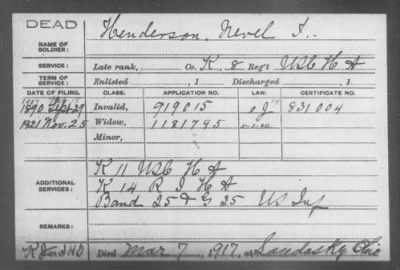 DEAD
Henderson, Nevel J.
NAME OF SOLDIER:
SERVICE: Late rank, Co. K, 8 Reg't USC H A
TERM OF SERVICE: Enlisted , 1 Discharged , 1
DATE OF FILING. CLASS. APPLICATION NO. LAW. CERTIFICATE NO.
1890 Sept 29 Invalid, 919015 831004
1921 Nov. 25 Widow, 1181795
Minor,
ADDITIONAL SERVICES:
K 11 USC H A
K 14 R I H A
Band 25th & G 25 US Inf
REMARKS:
Died Mar 7, 1917, at Sandusky Ohio